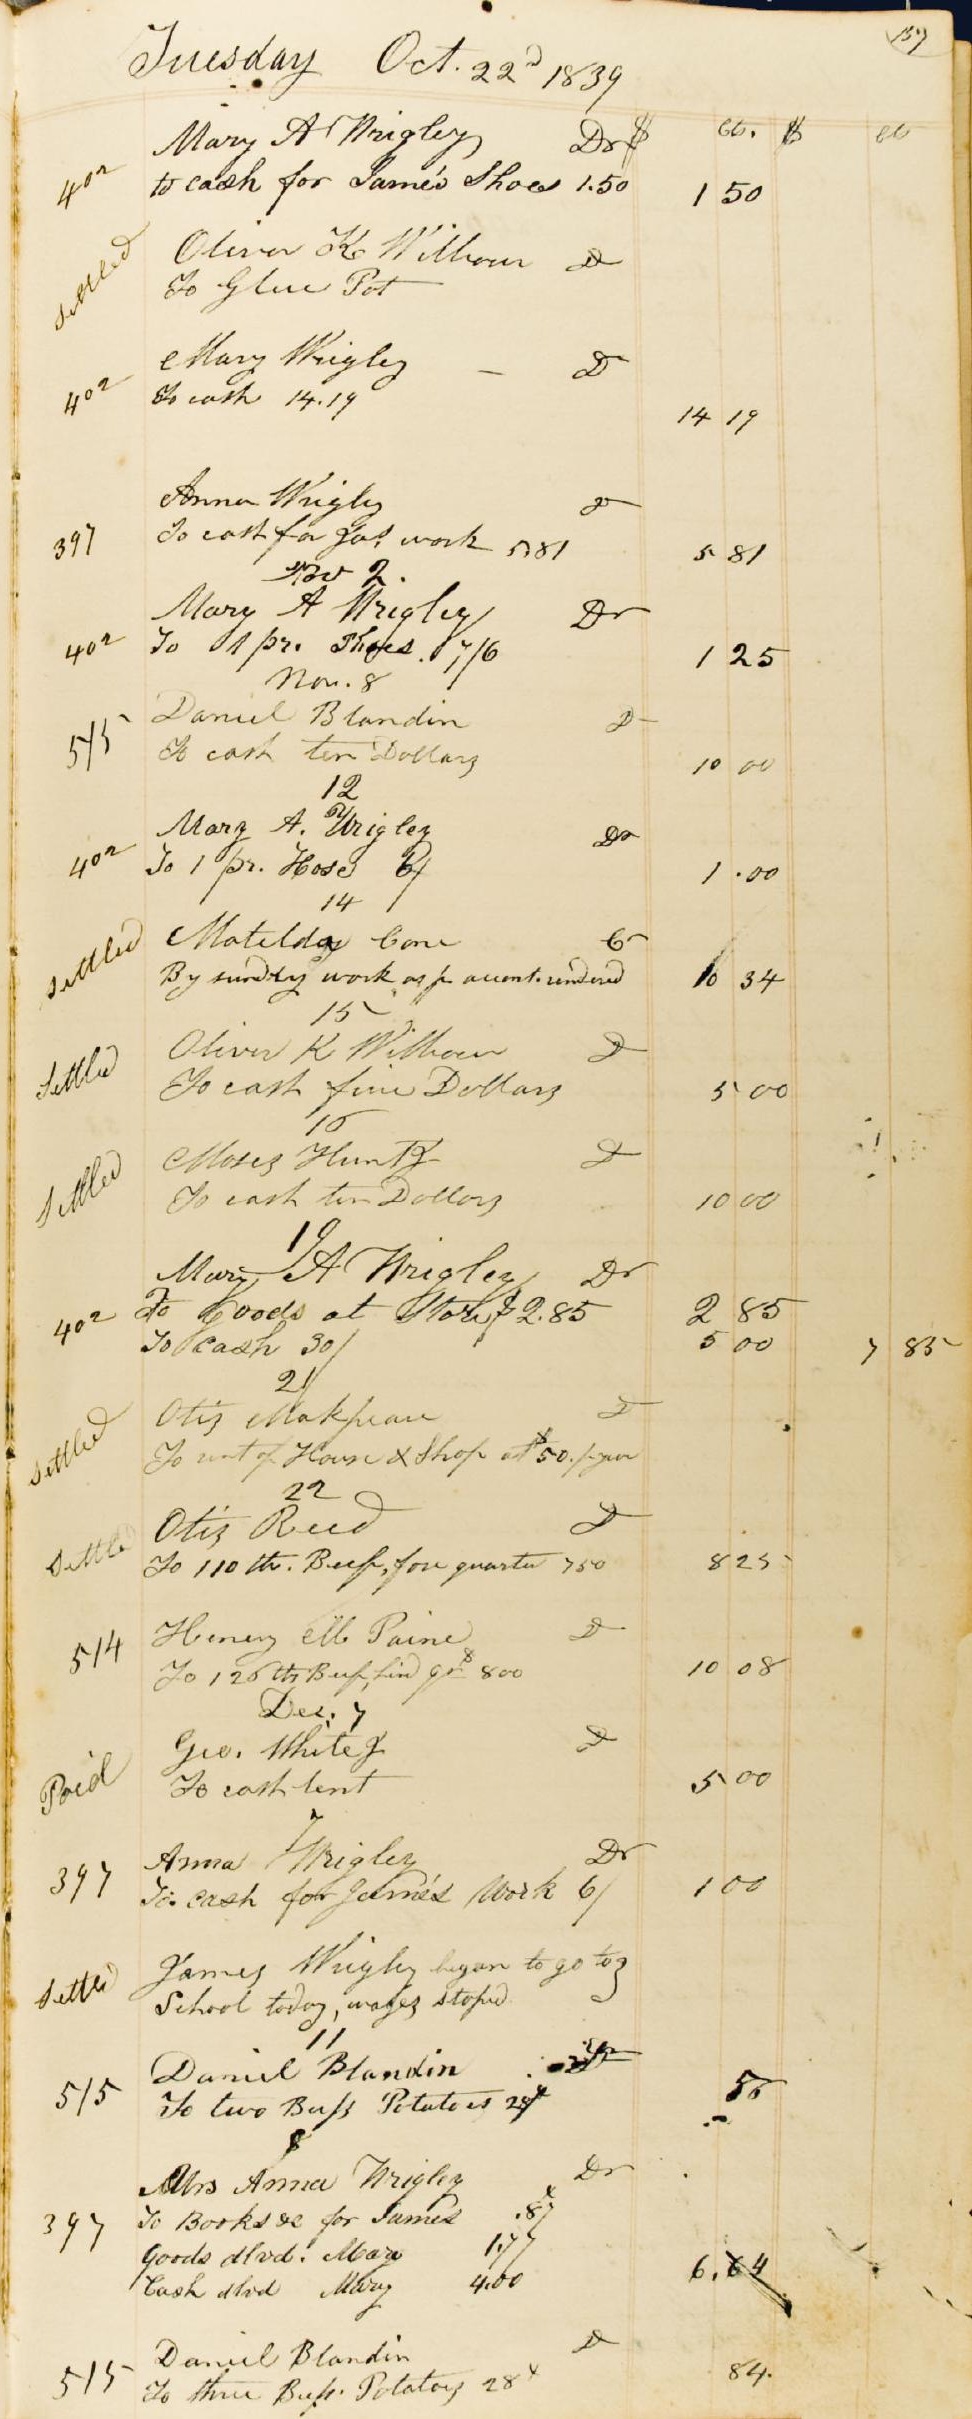 137
Tuesday Oct. 22d 1839
Mary A Wrigley Dr $ cts. $ cts
402 to cash for James Shoes 1.50 1 50
Settled Oliver K Wilbour D
To Glue Pot
Mary Wrigley - D
402 To cash 14.19 14 19
Anna Wrigley D
397 To cash for Jas. work 5.81 5 81
Nov 2.
Mary A Wrigley Dr
402 To 1 pr. Shoes. 7/6 1 25
Nov. 8
Daniel Blandin D
515 To cash ten Dollars 10 00
12
Mary A. Wrigley Dr
402 To 1 pr. Hose 6/ 1.00
14
Settled Matilda Cone Cr
By sundry work as pr account rendered 10 34
15
Oliver K Wilbour D
Settled To cash five Dollars 5 00
16
Moses Hunt D
Settled To cash ten Dollars 10 00
19
Mary A Wrigley Dr
402 To Goods at Store $2.85 2 85
To cash 30/ 5 00 7 85
21
Otis Makpeace D
Settled To rent of House & Shop at $50. pr year
22
Otis Reed D
Settled To 110 lb. Beef, fore quarter 750 8 25
514 Henry M Paine D
To 126 lb Beef, hind qr $ 800 10 08
Dec. 7
Geo. White D
Paid To cash lent 5 00
7
Anna Wrigley Dr
397 To cash for James Work 6/ 1 00
James Wrigley began to go to
Settled School today, wages stoped
11
Daniel Blandin
515 To two Bush Potatoes 28 56
8
Mrs Anna Wrigley Dr
397 To Books &c for James .87
Goods dlvd. Mary 1.77
Cash dlvd Mary 4.00 6.64
Daniel Blandin D
515 To three Bush. Potatoes 28 84.